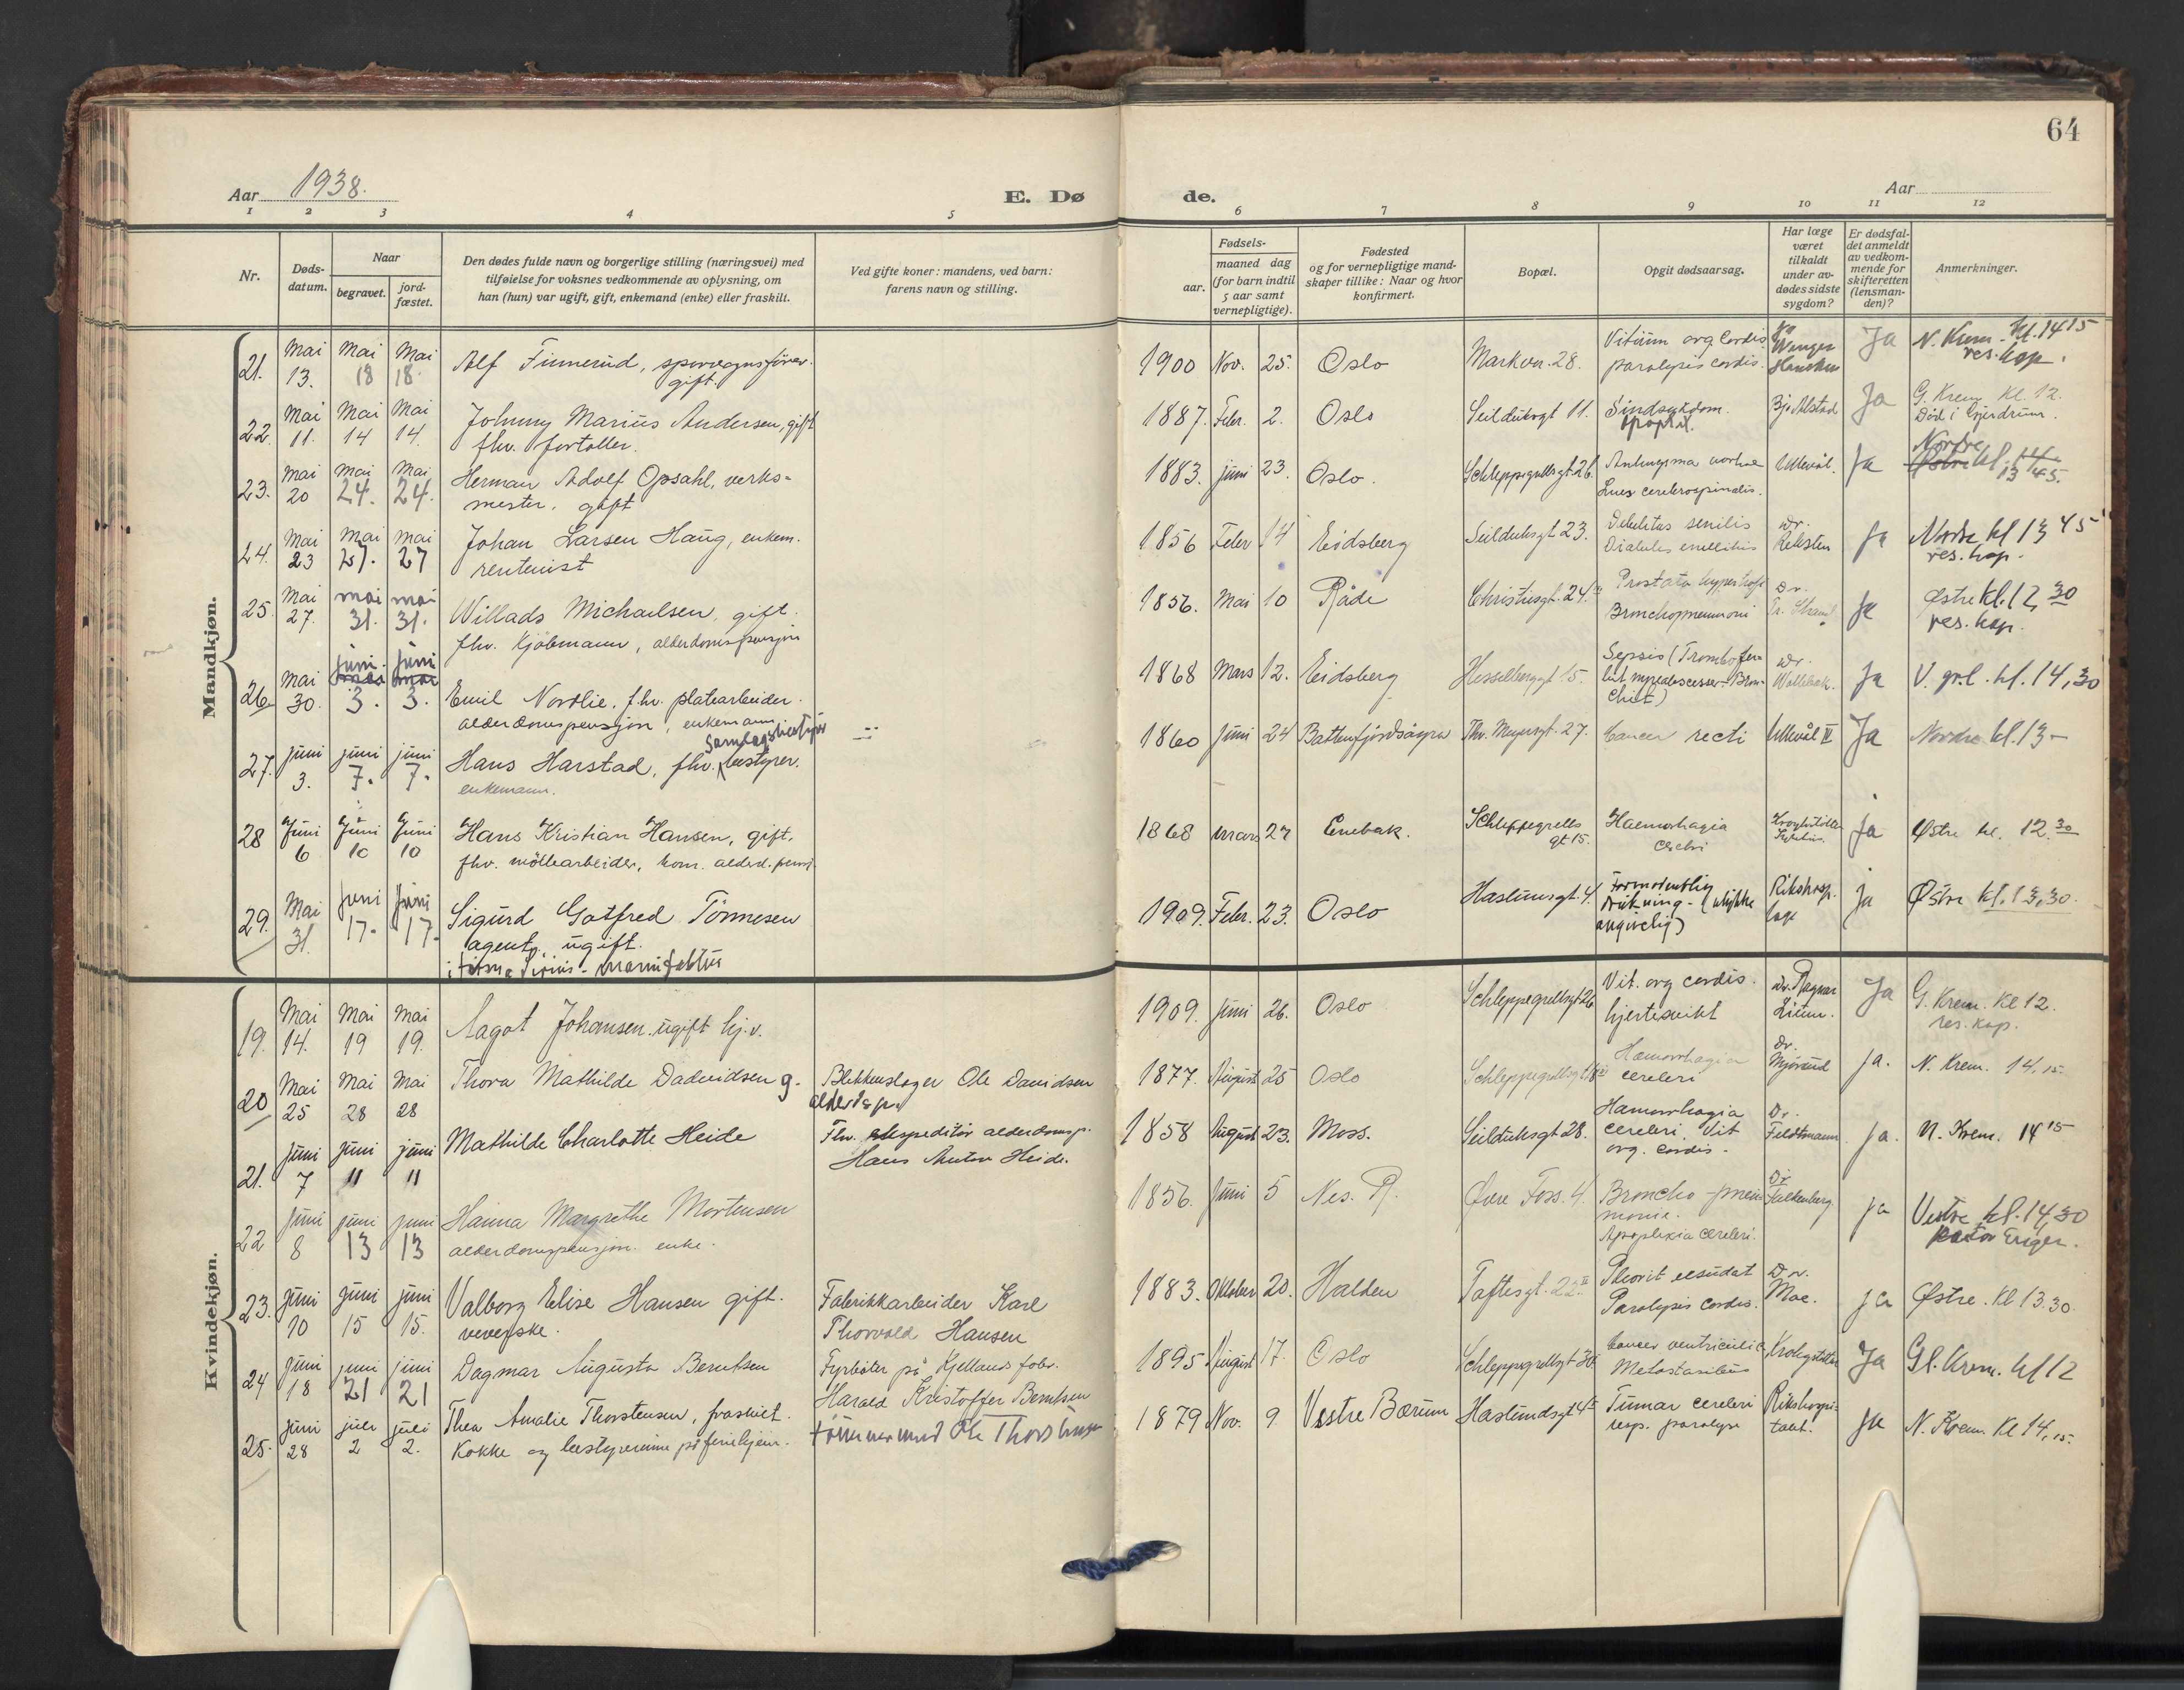 64
Aar 1938.
E. Dø de.
Aar
1 2 3 4 5 6 7 8 9 10 11 12
Nr.
Døds-
datum.
Naar
begravet.
jord-
fæstet.
Den dødes fulde navn og borgerlige stilling (næringsvei) med
tilføielse for voksnes vedkommende av oplysning, om
han (hun) var ugift, gift, enkemand (enke) eller fraskilt.
Ved gifte koner: mandens, ved barn:
farens navn og stilling.
Fødsels-
aar.
maaned dag
(for barn indtil
5 aar samt
vernepligtige).
Fødested
og for vernepligtige mand-
skaper tillike: Naar og hvor
konfirmert.
Bopæl.
Opgit dødsaarsag.
Har læge
været
tilkaldt
under av-
dødes sidste
sygdom?
Er dødsfal-
det anmeldt
av vedkom-
mende for
skifteretten
(lensman-
den)?
Anmerkninger.
Mandkjøn.
21. Mai 13. Mai 18 Mai 18. Alf Finnerud, sporvognsfører.
gift.
1900 Nov. 25. Oslo Markvn. 28. Vitium org. Cordis
paralysis cordis. Ja N. Krem. kl. 14 15
res. kap.
22. Mai 11. Mai 14 Mai 14. Johnny Marius Andersen, gift
fhv. fortoller.
1887. Febr. 2. Oslo Seilduksgt 11. Sindsykdom. Ja G. Krem. Kl. 12.
Død i Gjerdrum.
23. Mai 20 Mai 24. Mai 24. Herman Adolf Opsahl, verks-
mester, gift
1883. juni 23. Oslo. Schleppegrellsgt. 26. Lues cerebrospinalis. Ullevål. Ja Nordre
Østre kl. 13 45.
24. Mai 23 Mai 27. Mai 27 Johan Larsen Haug, enkem.
rentenist
1856 Febr 14 Eidsberg Seilduksgt 23. Debilitas senilis
Diabetes mellitus Dr. Reksten Ja Nordre kl 13 45
res. kap.
25. Mai 27. mai 31. mai 31. Willads Michaelsen, gift.
fhv. Kjøbmann, alderdomspensjon
1856. Mai 10 Råde Christiesgt. 24. Prostata hypertrofi
Bronchopneumoni Dr. Ja Østre Kl. 12 30
res. kap.
26. Mai 30. juni 3. juni 3. Emil Nordlie, fhv. platearbeider.
alderdomspensjon, enkemann.
1868 Mars 12. Eidsberg Hesselbergsgt 15. Sepsis Dr. Ja V. grl. kl. 14,30
27. juni 3. juni 7. juni 7. Hans Harstad, fhv. bestyrer.
enkemann.
1860 Juni 24 Battenfjordsøyra Th. Meyersgt. 27. Cancer recti Ullevål Ja Nordre kl. 13
28 Juni 6 Juni 10 Juni 10 Hans Kristian Hansen, gift.
fhv. möllearbeider, kom. alderd. pensj.
1868 mars 27 Enebak. Schleppegrells
gt 15. Haemorhagia
cerebri ja Østre kl. 12.30
29. Mai 31. juni 17. juni 17. Sigurd Gotfred Tönnesen
agent, ugift.
i firma Sirius - manufaktur
1909. Febr. 23. Oslo Haslumsgt. 4. Formodentlig
drukning - (ulykke
angivelig) Rikshosp.
lege ja Østre kl. 13,30.
Kvindekjøn.
19. Mai 14. Mai 19 Mai 19. Aagot Johansen. ugift hj.v.
1909. juni 26. Oslo Schleppegrellsgt 26 Vit. org cordis.
hjertesvikt Dr. Ragnar
Lium. Ja G. Krem. Kl 12.
res. kap.
20 Mai 25 Mai 28 Mai 28 Thora Mathilde Davidsen g. Blikkenslager Ole Davidsen
1877. August 25 Oslo Haemorrhagia
cerebri Dr. ja. N. Krem. 14,15
21. juni 7 juni 11 juni 11 Mathilde Charlotte Heide Fhv. ekspeditör alderdomsp.
Hans Anton Heide.
1858 August 23. Moss. Seilduksgt 28. Hamorrhagia
cerebri. Vit
org. cordis. Dr.
Feldtmann ja. N. Krem. 14 15
22 juni 8 juni 13 juni 13 Hanna Margrethe Mortensen
alderdomspensjon. enke.
1856. juni 5 Nes. R. Øvre Foss. 4. Broncho-pneu
monie.
Apoplexia cerebri. Dr
Falkenberg. ja Vestre kl. 14,30
pastor Enger.
23. juni 10 juni 15 juni 15. Valborg Elise Hansen gift.
veverske. Fabrikkarbeider Karl
Thorvald Hansen
1883. Oktober 20. Halden Toftesgt. 22 Plevrit exsudat
Paralysis cordis. Dr.
Moe. ja Østre. Kl 13.30.
24 juni 18 juni 21 juni 21 Dagmar Augusta Berntsen Fyrbøter på Kjellands fabr.
Harald Kristoffer Berntsen
1895 August 17. Oslo Schleppegrellsgt 30 Cancer ventriculi
Metastasibus Ja Gl. Krem. kl 12
25. juni 28 juli 2 juli 2. Thea Amalie Thorstensen, fraskilt.
Kokke og bestyrerinne på feriehjem. tömmermand Ole Thorstensen
1879 Nov. 9. Vestre Bærum Haslumsgt 4 Tumor cerebri
resp. paralyse Rikshospi-
talet. ja N. Krem. Kl 14,15.